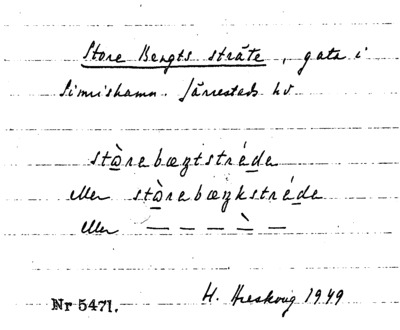 Store Bengts sträte, gata i
Simrishamn. Järrestads hd
stò̲rabæŋtstré̲da
eller stò̲rabæŋkstré̲da
eller — — — ˋ— —
Nr 5471. H. Areskoug 1949